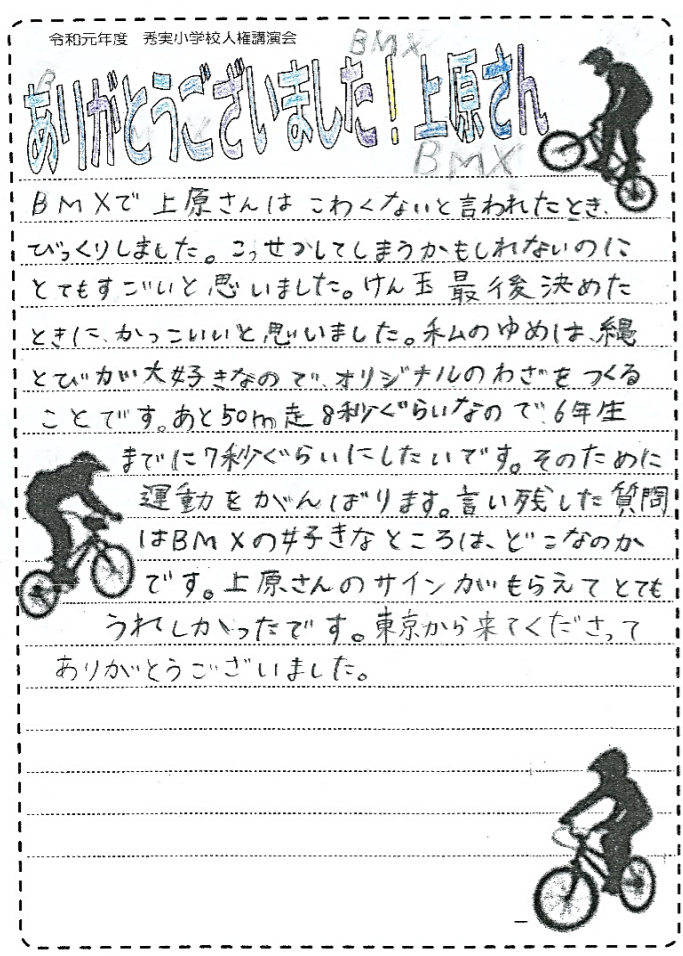 令和元年度　秀実小学校人権講演会
BMX
B
ありがとうございました！上原さん
BMX
BMXで上原さんはこわくないと言われたとき、
びっくりしました。こっせつしてしまうかもしれないのに
とてもすごいと思いました。けん玉最後決めた
ときに、かっこいいと思いました。私のゆめは、縄
とびが大好きなので、オリジナルのわざをつくる
ことです。あと50m走8秒ぐらいなので、6年生
までに7秒ぐらいにしたいです。そのために
運動をがんばります。言い残した質問
はBMXの好きなところは、どこなのか
です。上原さんのサインがもらえてとても
うれしかったです。東京から来てくださって
ありがとうございました。